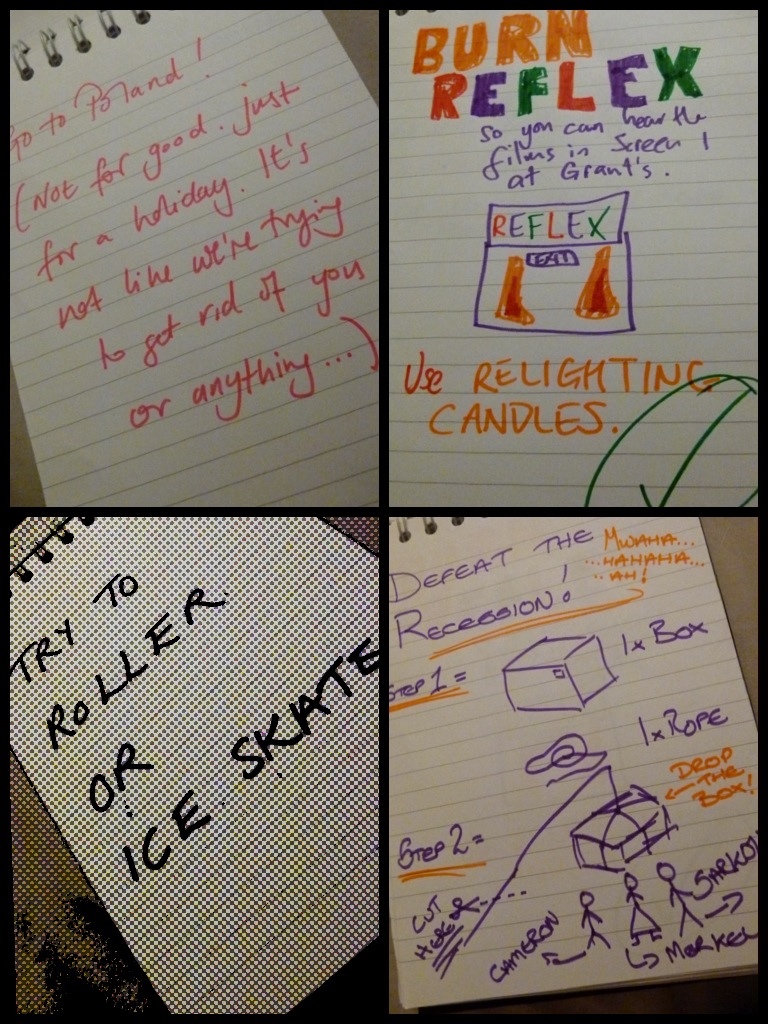 Go to Poland!
(Not for good. Just
for a holiday. It's
not like we're trying
to get rid of you
or anything...)
BURN
REFLEX
So you can hear the
films in Screen 1
at Grant's.
REFLEX
EXIT
Use RELIGHTING
CANDLES.
TRY TO
ROLLER
OR
ICE SKATE
DEFEAT THE
RECESSION!
MWAHA...
...HAHAHA...
..AH!
STEP 1 =
1x BOX
1x ROPE
DROP
THE
BOX!
STEP 2 =
CUT
HERE
CAMERON
MERKEL
SARKO